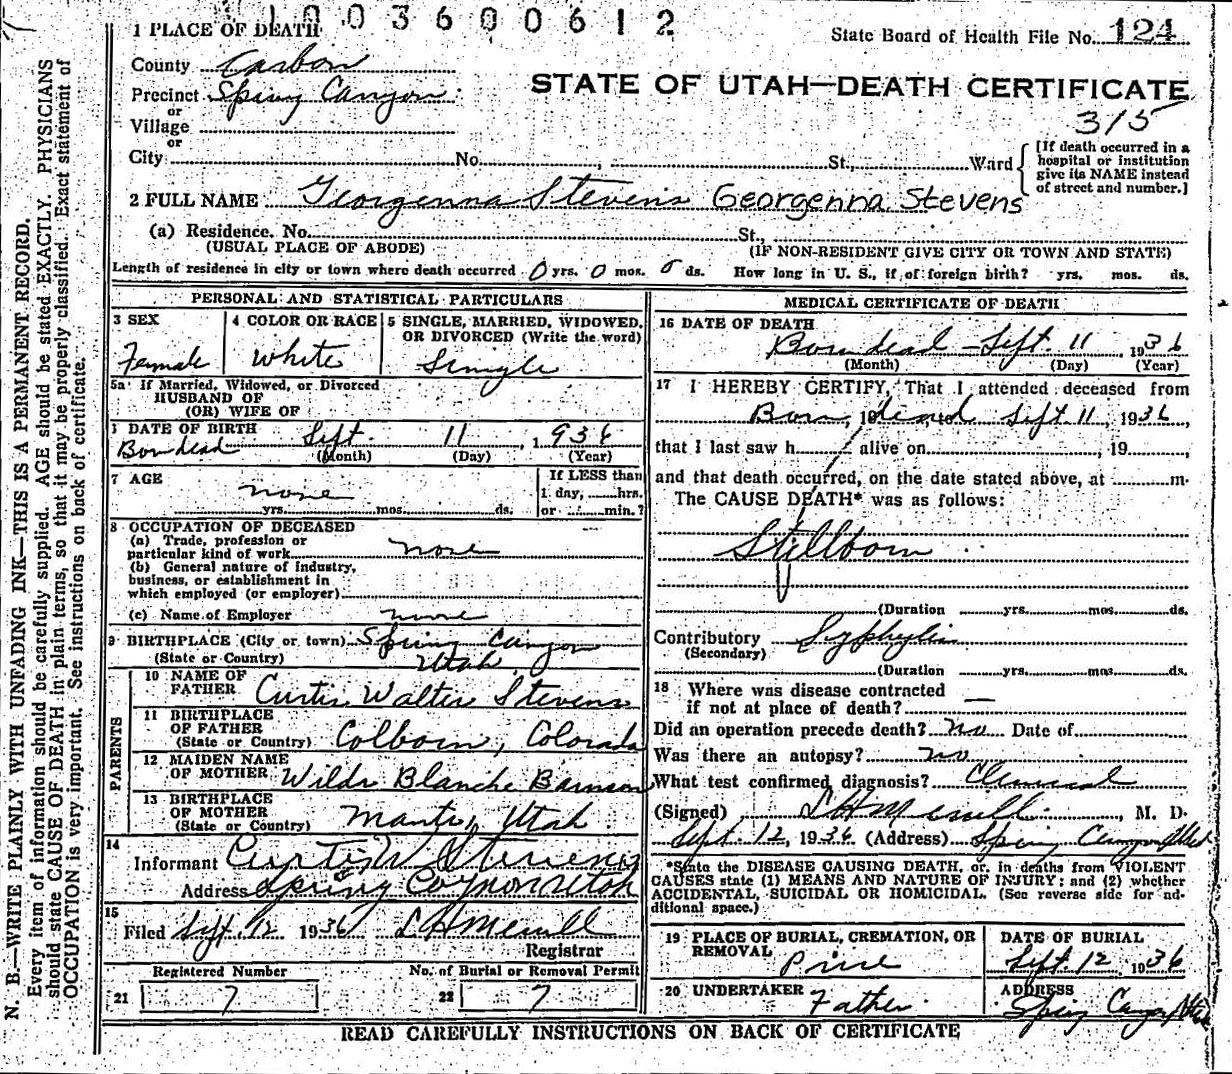 1003600612
1 PLACE OF DEATH
State Board of Health File No. 124
County Carbon
STATE OF UTAH—DEATH CERTIFICATE
Precinct Spring Canyon
315
or
Village
or
City No. , St., Ward
[If death occurred in a
hospital or institution
give its NAME instead
of street and number.]
2 FULL NAME Georgenna Stevens Georgenna Stevens
(a) Residence. No. St.,
(USUAL PLACE OF ABODE) (IF NON-RESIDENT GIVE CITY OR TOWN AND STATE)
Length of residence in city or town where death occurred 0 yrs. 0 mos. 0 ds. How long in U. S., if of foreign birth? yrs. mos. ds.
PERSONAL AND STATISTICAL PARTICULARS
3 SEX
Female
4 COLOR OR RACE
White
5 SINGLE, MARRIED, WIDOWED,
OR DIVORCED (Write the word)
Single
5a If Married, Widowed, or Divorced
HUSBAND OF
(OR) WIFE OF
DATE OF BIRTH
Born dead Sept. 11, 1936
(Month) (Day) (Year)
7 AGE
none
yrs. mos. ds.
If LESS than
1 day, hrs.
or min.?
8 OCCUPATION OF DECEASED
(a) Trade, profession or
particular kind of work none
(b) General nature of industry,
business, or establishment in
which employed (or employer)
(c) Name of Employer none
9 BIRTHPLACE (City or town) Spring Canyon
(State or Country) Utah
PARENTS
10 NAME OF
FATHER Curtis Walter Stevens
11 BIRTHPLACE
OF FATHER
(State or Country) Colborn, Colorado
12 MAIDEN NAME
OF MOTHER Wilda Blanche
13 BIRTHPLACE
OF MOTHER
(State or Country) Manti, Utah
14
Informant Curtis W Stevens
Address Spring Canyon Utah
15
Filed Sept. 12 1936 L H Merrill
Registrar
Registered Number No. of Burial or Removal Permit
21 7 22 7
MEDICAL CERTIFICATE OF DEATH
16 DATE OF DEATH
Born dead - Sept. 11, 1936
(Month) (Day) (Year)
17 I HEREBY CERTIFY, That I attended deceased from
Born, 19 dead Sept 11, 1936
that I last saw h alive on , 19
and that death occurred, on the date stated above, at m.
The CAUSE DEATH* was as follows:
Stillborn
(Duration yrs. mos. ds.
Contributory Syphylis
(Secondary)
(Duration yrs. mos. ds.
18 Where was disease contracted
if not at place of death? —
Did an operation precede death? no Date of
Was there an autopsy? no
What test confirmed diagnosis? Clinical
(Signed) L H Merrill, M. D.
Sept. 12, 1936 (Address) Spring Canyon Utah
*State the DISEASE CAUSING DEATH, or, in deaths from VIOLENT
CAUSES state (1) MEANS AND NATURE OF INJURY; and (2) whether
ACCIDENTAL, SUICIDAL OR HOMICIDAL. (See reverse side for ad-
ditional space.)
19 PLACE OF BURIAL, CREMATION, OR
REMOVAL Price
DATE OF BURIAL
Sept. 12, 1936
20 UNDERTAKER Father
ADDRESS
Spring Canyon Utah
READ CAREFULLY INSTRUCTIONS ON BACK OF CERTIFICATE
N. B.—WRITE PLAINLY WITH UNFADING INK—THIS IS A PERMANENT RECORD.
Every item of information should be carefully supplied. AGE should be stated EXACTLY. PHYSICIANS
should state CAUSE OF DEATH in plain terms, so that it may be properly classified. Exact statement of
OCCUPATION is very important. See instructions on back of certificate.